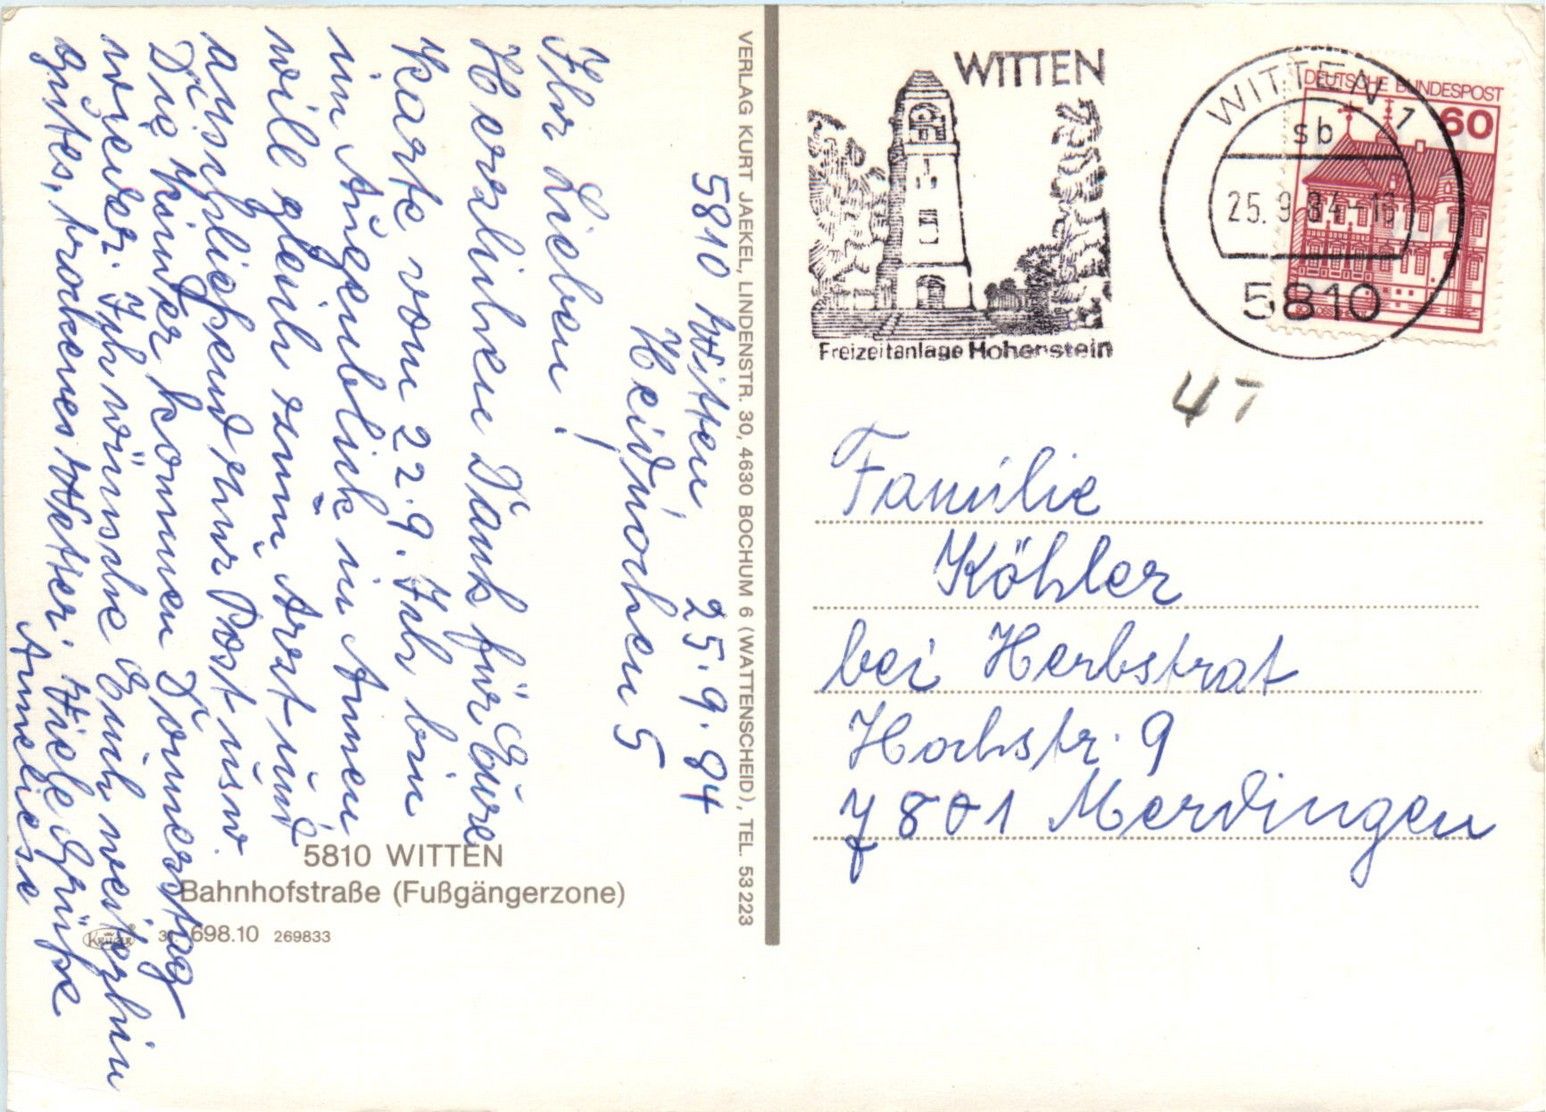 5810 Witten 25.9.84
Heidnocken 5
Ihr Lieben!
Herzlichen Dank für Eure
Karte vom 22.9. Ich bin
im Augenblick in Annen
will gleich zum Arzt und
anschließend zur Post usw.
Die Kinder kommen Donnerstag
wieder. Ich wünsche Euch weiterhin
gutes, trockenes Wetter. Viele Grüße
Anneliese
5810 WITTEN
Bahnhofstraße (Fußgängerzone)
KRÜGER
698.10 269833
VERLAG KURT JAEKEL, LINDENSTR. 30, 4630 BOCHUM 6 (WATTENSCHEID), TEL. 53 223
WITTEN
Freizeitanlage Hohenstein
WITTEN 1
sb
25.9.84-16
5810
DEUTSCHE BUNDESPOST
60
47
Familie
Köhler
bei Herbstrat
Hochstr. 9
7801 Merdingen